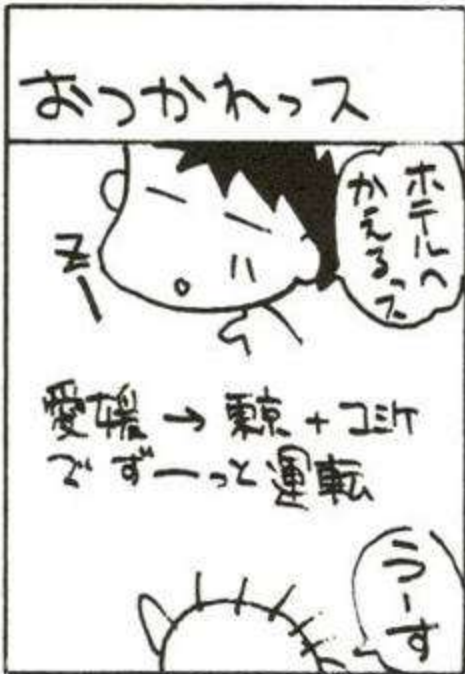 おつかれっス
ホテルへ
かえるっス
Zー
愛媛→東京+コミケ
でずーっと運転
うーす